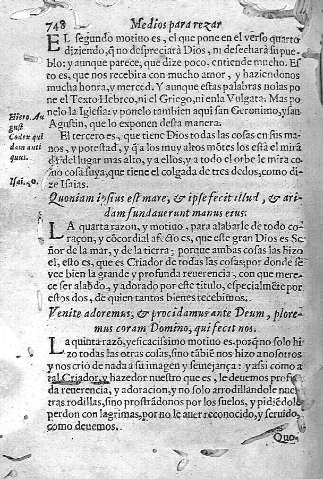 748 Medios para rezar
EL segundo motiuo es, el que pone en el verso quarto
diziendo, q̃ no despreciarà Dios, ni desecharà su pue-
blo: y aunque parece, que dize poco, entiende mucho. Es
to es, que nos recibira con mucho amor, y haziendonos
mucha honra, y merced. Y aunque estas palabras no las po
ne el Texto Hebreo, ni el Griego, ni en la Vulgata. Mas po
nelo la Iglesia: y ponelo tambien aqui san Geronimo, y san
Agustin, que lo exponen desta manera.
Hiero. Au
gust
Codex qui
dam anti
quus.
El tercero es, que tiene Dios todas las cosas en sus ma-
nos, y potestad, y q̃ a los muy altos mõtes los està el mirã
do del lugar mas alto, y a ellos, y a todo el orbe le mira co
mo cosa suya, que tiene el colgada de tres dedos, como di-
ze Isaias.
Isai. 40.
Quoniam ipsius est mare, & ipse fecit illud, & ari-
dam fundauerunt manus eius.
LA quarta razon, y motiuo, para alabarle de todo co-
raçon, y cõcordial afecto es, que este gran Dios es Se-
ñor de la mar, y de la tierra; porque ambas cosas las hizo
el, esto es, que es Criador de todas las cosas; por donde se
vee bien la grande y profunda reuerencia, con que mere-
ce ser alabdo, y adorado por este titulo, especialmẽte por
estos dos, de quien tantos bienes recebimos.
Venite adoremus, & procidamus ante Deum, plore-
mus coram Domino, qui fecit nos.
La quinta razõ, y eficacissimo motiuo es. porq̃ no solo hi-
zo todas las otras cosas, sino tãbiẽ nos hizo a nosotros
y nos crio de nada a su imagen y semejança: y assi como a
tal Criador, y hazedor nuestro que es, le deuemos profũ
da reuerencia, y adoracion, y no solo arrodillandole nues
tras rodillas, sino prostrãdonos por los suelos, y pidiẽdole
perdon con lagrimas, por no le auer reconocido, y seruido,
como deuemos.
Quo-